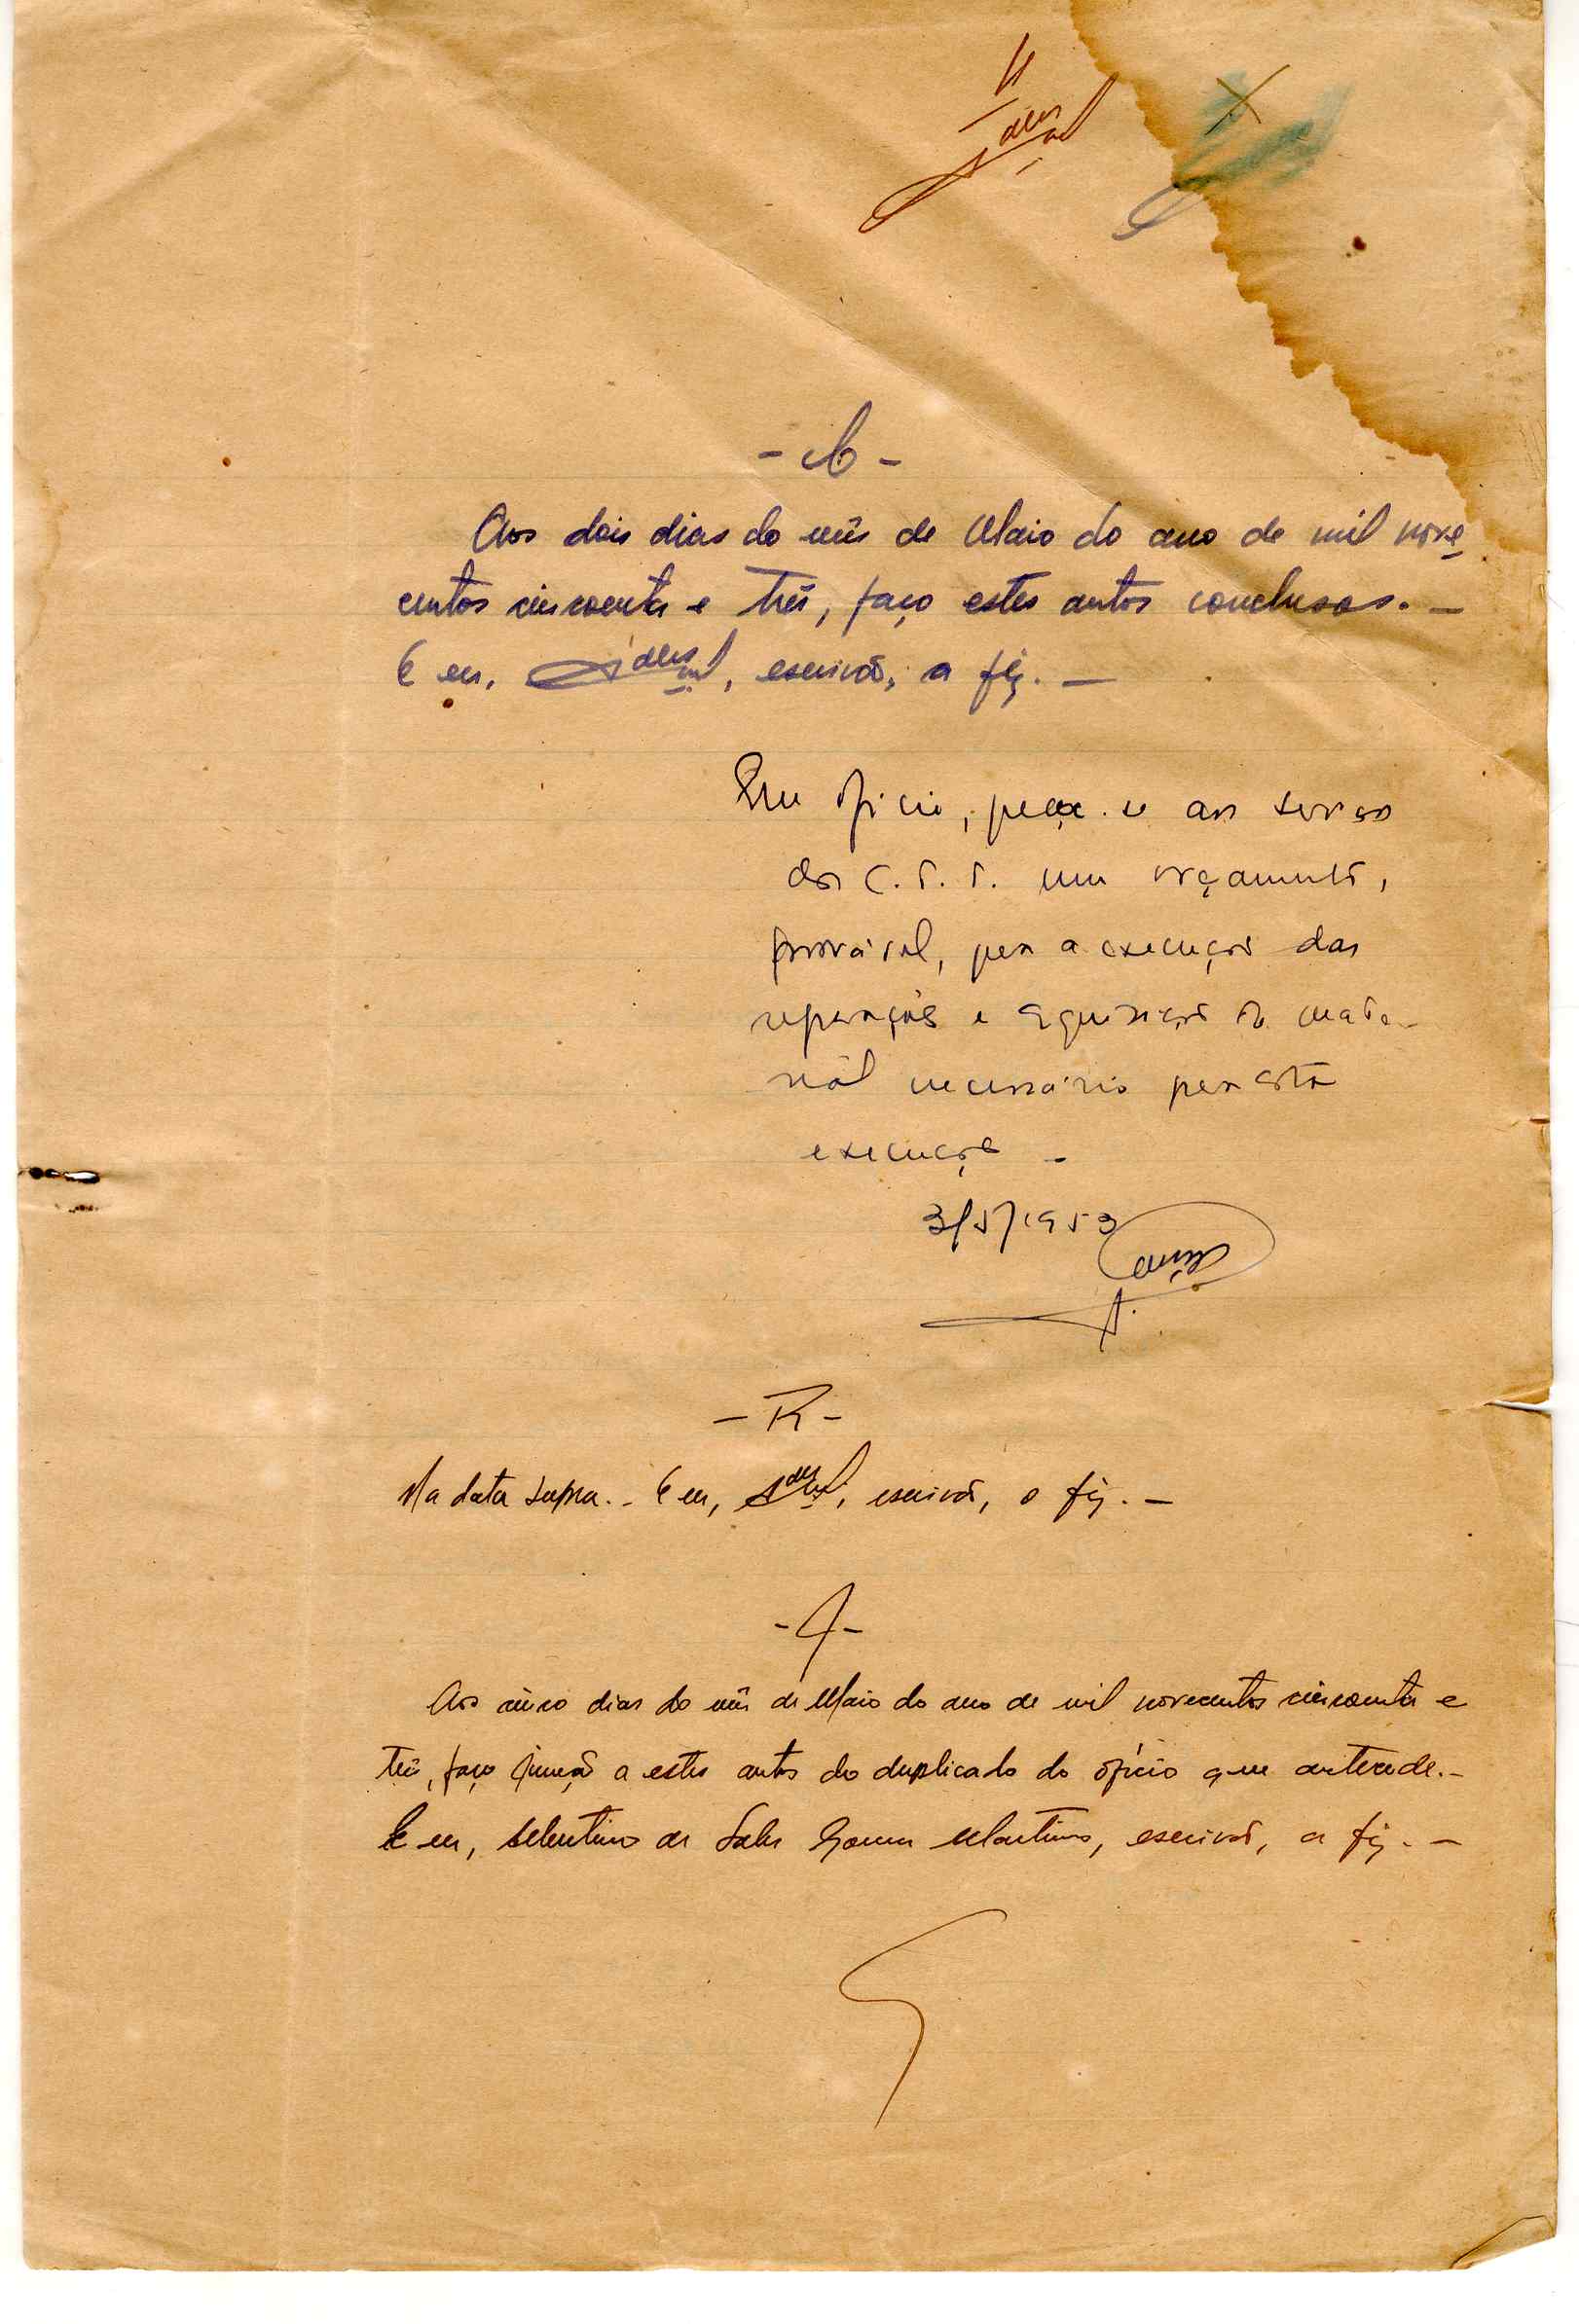 11
- C -
Aos dois dias do mês de Maio do ano de mil nove
centos cincoenta e três, faço estes autos conclusos. -
E eu, escrivão, a fiz. -
Em oficio, peça-se aos serviços
dos C. T. T. um orçamento,
provável, para a execução das
reparações e aquisição de mate-
rial necessário para esta
execução -
3/5/1953
- R -
Na data supra. - E eu, escrivão, o fiz. -
- J -
Aos cinco dias do mês de Maio do ano de mil novecentos cincoenta e
três, faço junção a estes autos do duplicado do ofício que antecede. -
E eu, de Sales Gomes Martins, escrivão, a fiz. -